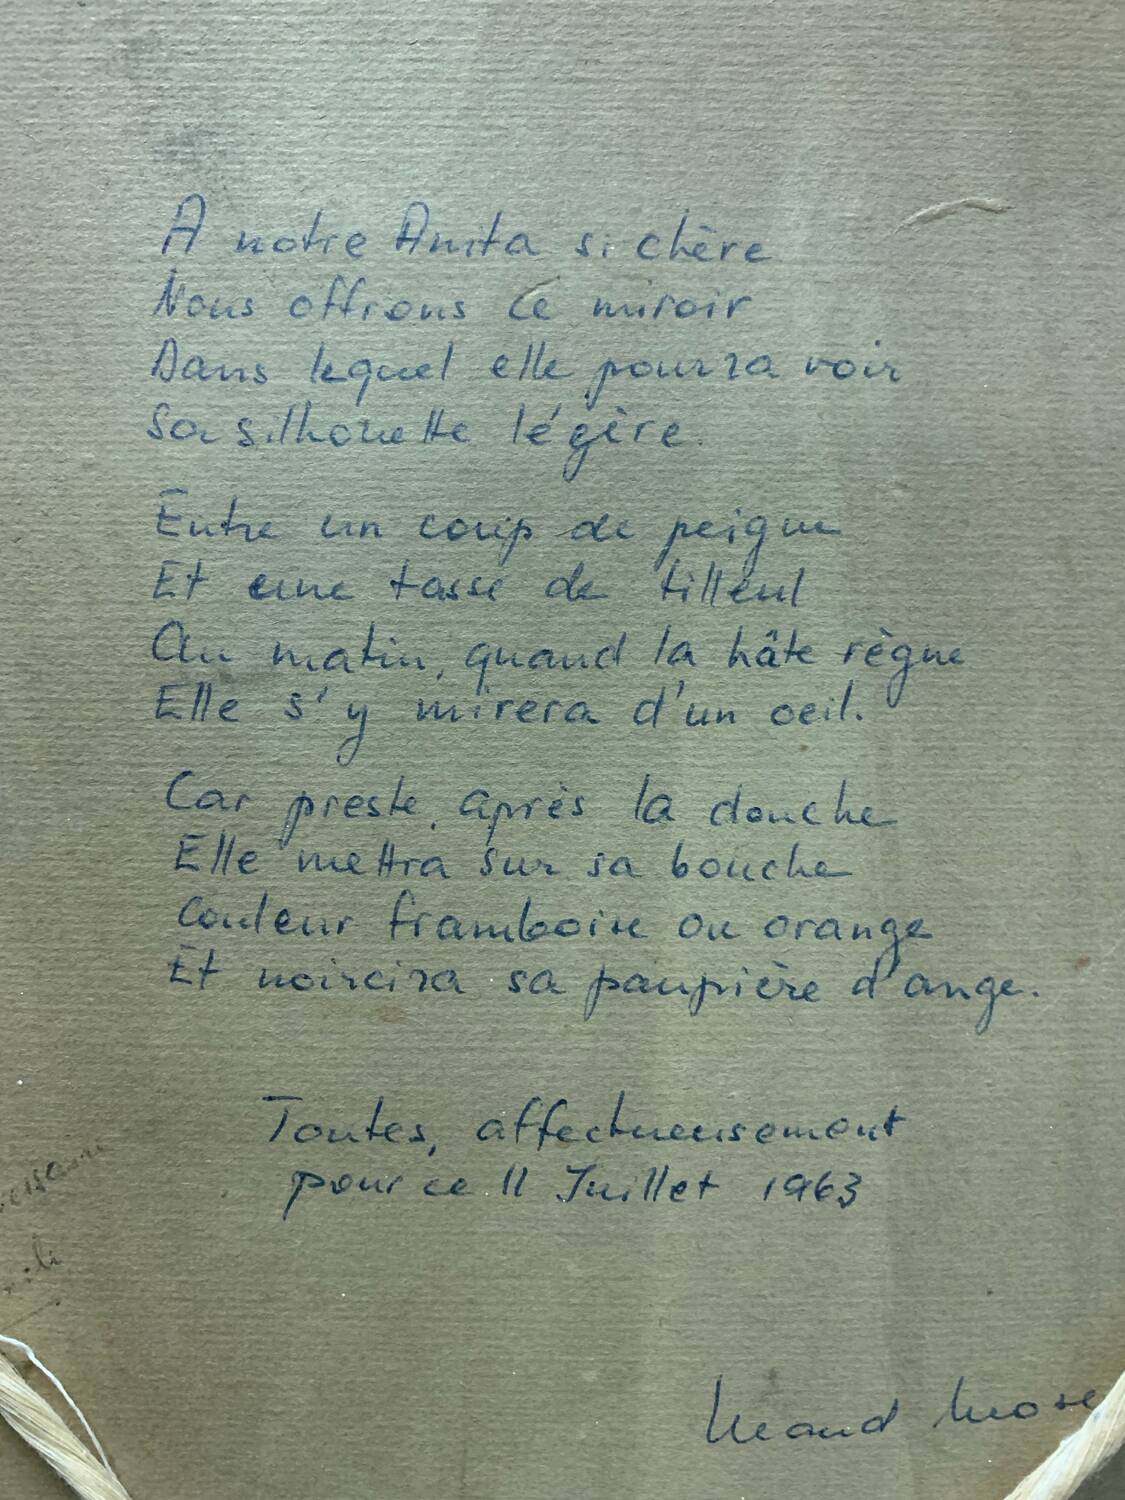 A notre Anita si chère
Nous offrons ce miroir
Dans lequel elle pourra voir
Sa silhouette légère.
Entre un coup de peigne
Et une tasse de tilleul
Au matin, quand la hâte règne
Elle s'y mirera d'un oeil.
Car preste, après la douche
Elle mettra sur sa bouche
Couleur framboise ou orange
Et noircira sa paupière d'ange.
Toutes, affectueusement
pour ce 11 Juillet 1963
Maud